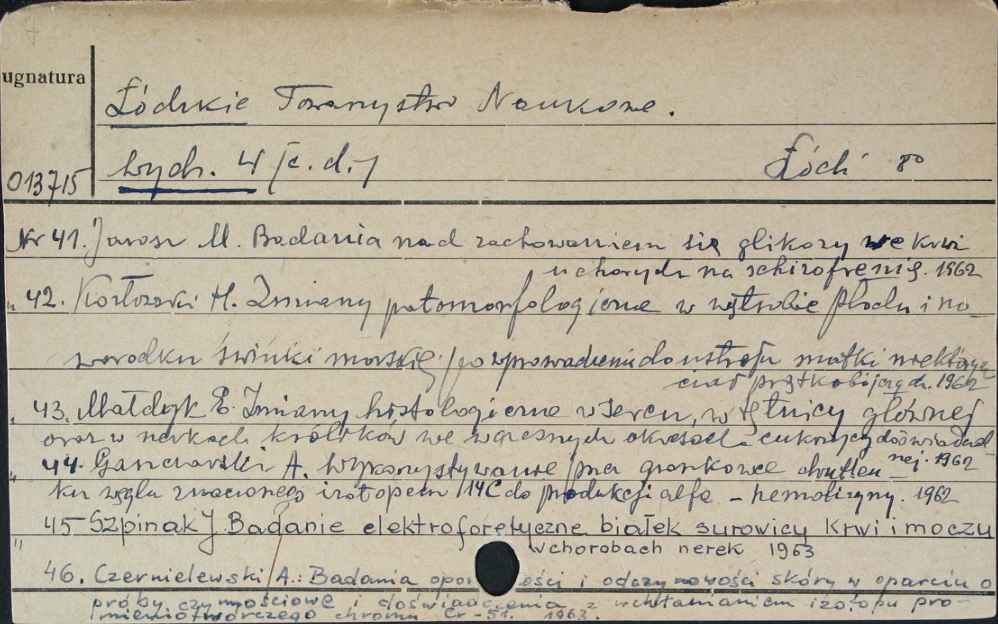 ugnatura
Łódzkie Towarzystwo Naukowe.
Wydz. 4 /c.d./ Łódź 8°
013715
Nr 41. Jarosz M. Badania nad zachowaniem się glikozy we krwi
u chorych na schizofrenię. 1962
" 42. Kozłowski H. Zmiany patomorfologiczne w wątrobie płodu i no-
worodku świnki morskiej po wprowadzeniu do ustroju matki niektórych
ciał prątkobójczych. 1962
" 43. Małdyk E. Zmiany histologiczne w sercu, w tętnicy głównej
oraz w nerkach królików we wczesnych okresach cukrzycy doświadczal-
nej. 1962
" 44. Ganczarski A. Wykorzystywanie przez gronkowce dwutlen-
ku węgla znaczonego izotopem 14C do produkcji alfa - hemolizyny. 1962
" 45 Szpinak J. Badanie elektroforetyczne białek surowicy krwi i moczu
w chorobach nerek 1963
46. Czernielewski A.: Badania opor ości i odczynowości skóry w oparciu o
próby czynnościowe i doświadczenia z wchłanianiem izotopu pro-
mieniotwórczego chromu Cr-51. 1963.